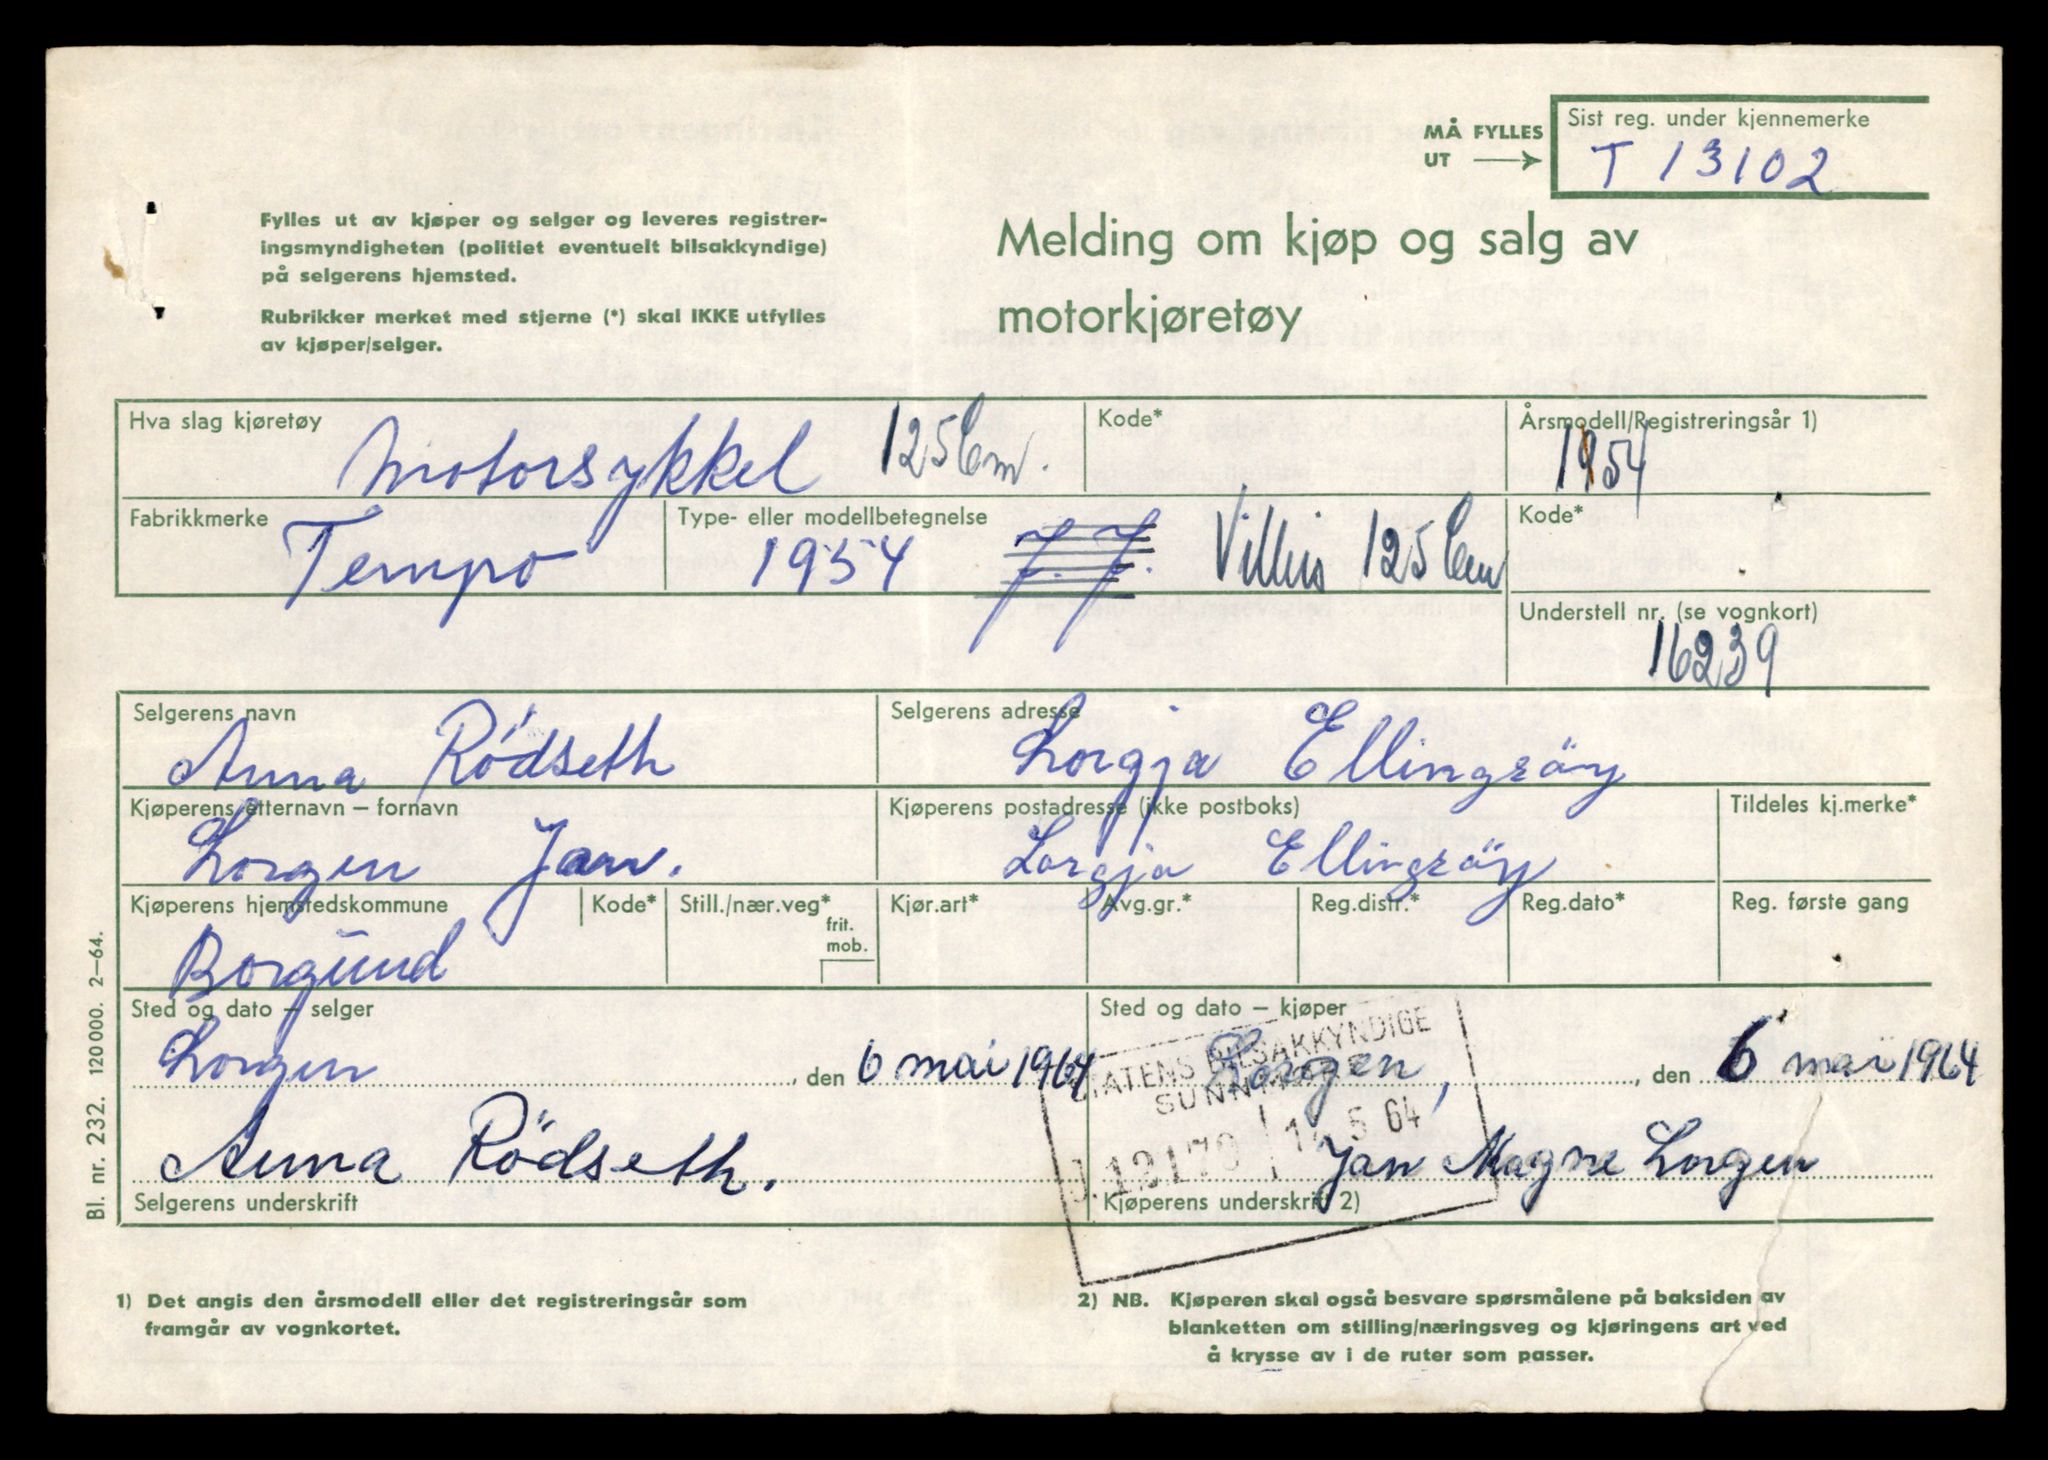 MÅ FYLLES
UT
Sist reg. under kjennemerke
T 13102
Fylles ut av kjøper og selger og leveres registrer-
ingsmyndigheten (politiet eventuelt bilsakkyndige)
på selgerens hjemsted.
Rubrikker merket med stjerne (*) skal IKKE utfylles
av kjøper/selger.
Melding om kjøp og salg av
motorkjøretøy
Hva slag kjøretøy
Motorsykkel 125 Ccm.
Kode*
Årsmodell/Registreringsår 1)
1954
Fabrikkmerke
Tempo
Type- eller modellbetegnelse
1954 J. J. Villis 125 Ccm
Kode*
Understell nr. (se vognkort)
16239
Selgerens navn
Anna Rödseth
Selgerens adresse
Lorgja Ellingsöy
Kjøperens etternavn – fornavn
Lorgen Jan.
Kjøperens postadresse (ikke postboks)
Lorgja Ellingsöy
Tildeles kj.merke*
Kjøperens hjemstedskommune
Borgund
Kode*
Still./nær.veg*
frit.
mob.
Kjør.art*
Avg.gr.*
Reg.distr.*
Reg.dato*
Reg. første gang
Sted og dato – selger
Lorgen, den 6 mai 1964
Sted og dato – kjøper
Lorgen, , den 6 mai 1964
STATENS BILSAKKYNDIGE
14 5 64
Anna Rödseth.
Selgerens underskrift
Jan Magne Lorgen
Kjøperens underskrift 2)
Bl. nr. 232. 120 000. 2–64.
1) Det angis den årsmodell eller det registreringsår som
framgår av vognkortet.
2) NB. Kjøperen skal også besvare spørsmålene på baksiden av
blanketten om stilling/næringsveg og kjøringens art ved
å krysse av i de ruter som passer.